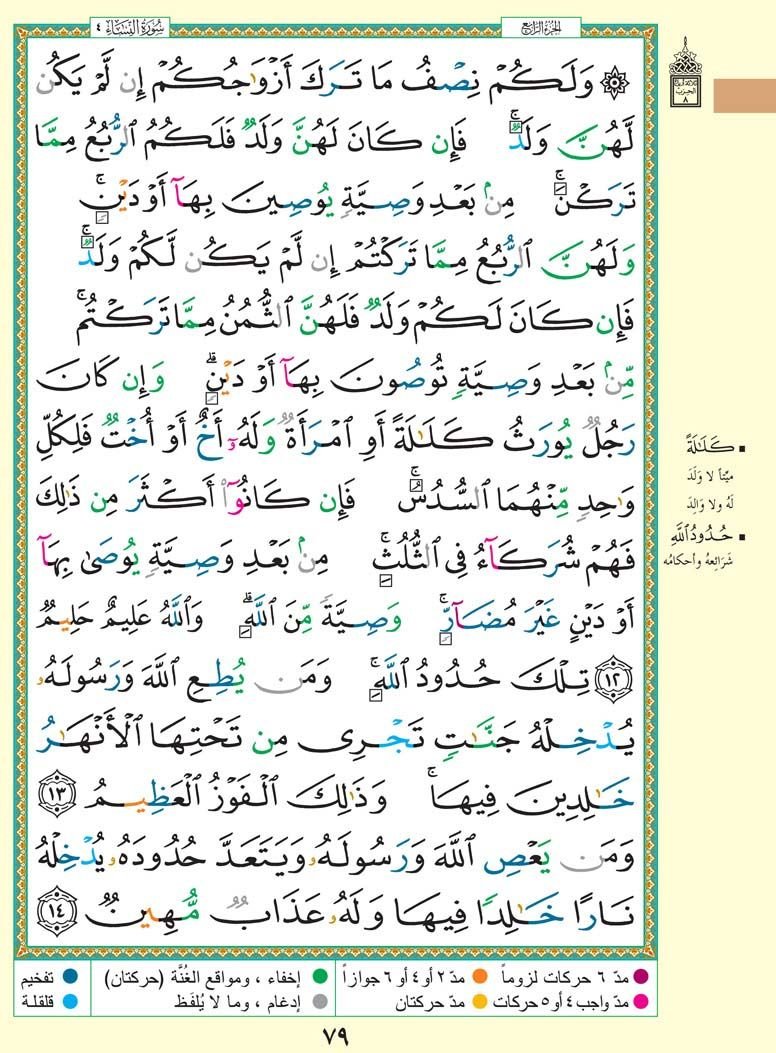 سُورَةُ النِّسَاءِ ٤
الجُزْءُ الرَّابِعُ
۞ وَلَكُمْ نِصْفُ مَا تَرَكَ أَزْوَٰجُكُمْ إِن لَّمْ يَكُن
لَّهُنَّ وَلَدٌۚ فَإِن كَانَ لَهُنَّ وَلَدٌ فَلَكُمُ ٱلرُّبُعُ مِمَّا
تَرَكْنَۚ مِنۢ بَعْدِ وَصِيَّةٍ يُوصِينَ بِهَآ أَوْ دَيْنٍۚ
وَلَهُنَّ ٱلرُّبُعُ مِمَّا تَرَكْتُمْ إِن لَّمْ يَكُن لَّكُمْ وَلَدٌۚ
فَإِن كَانَ لَكُمْ وَلَدٌ فَلَهُنَّ ٱلثُّمُنُ مِمَّا تَرَكْتُمۚ
مِّنۢ بَعْدِ وَصِيَّةٍ تُوصُونَ بِهَآ أَوْ دَيْنٍۗ وَإِن كَانَ
رَجُلٌ يُورَثُ كَلَـٰلَةً أَوِ ٱمْرَأَةٌ وَلَهُۥٓ أَخٌ أَوْ أُخْتٌ فَلِكُلِّ
وَٰحِدٍ مِّنْهُمَا ٱلسُّدُسُۚ فَإِن كَانُوٓا۟ أَكْثَرَ مِن ذَٰلِكَ
فَهُمْ شُرَكَآءُ فِى ٱلثُّلُثِۚ مِنۢ بَعْدِ وَصِيَّةٍ يُوصَىٰ بِهَآ
أَوْ دَيْنٍ غَيْرَ مُضَآرٍّۚ وَصِيَّةً مِّنَ ٱللَّهِۗ وَٱللَّهُ عَلِيمٌ حَلِيمٌ
١٢ تِلْكَ حُدُودُ ٱللَّهِۚ وَمَن يُطِعِ ٱللَّهَ وَرَسُولَهُۥ
يُدْخِلْهُ جَنَّـٰتٍ تَجْرِى مِن تَحْتِهَا ٱلْأَنْهَـٰرُ
خَـٰلِدِينَ فِيهَاۚ وَذَٰلِكَ ٱلْفَوْزُ ٱلْعَظِيمُ ١٣
وَمَن يَعْصِ ٱللَّهَ وَرَسُولَهُۥ وَيَتَعَدَّ حُدُودَهُۥ يُدْخِلْهُ
نَارًا خَـٰلِدًا فِيهَا وَلَهُۥ عَذَابٌ مُّهِينٌ ١٤
الحِزْب
٨
▪ كَلَـٰلَةً
ميِّتاً لا وَلَدَ
لَهُ ولا وَالِدَ
▪ حُدُودُ ٱللَّهِ
شَرَائِعُهُ وأحكامُه
مدّ ٦ حركات لزوماً
مدّ ٢ أو ٤ أو ٦ جوازاً
إخفاء ، ومواقع الغُنَّة (حركتان)
تفخيم
مدّ واجب ٤ أو ٥ حركات
مدّ حركتان
إدغام ، وما لا يُلفَظ
قلقلة
٧٩